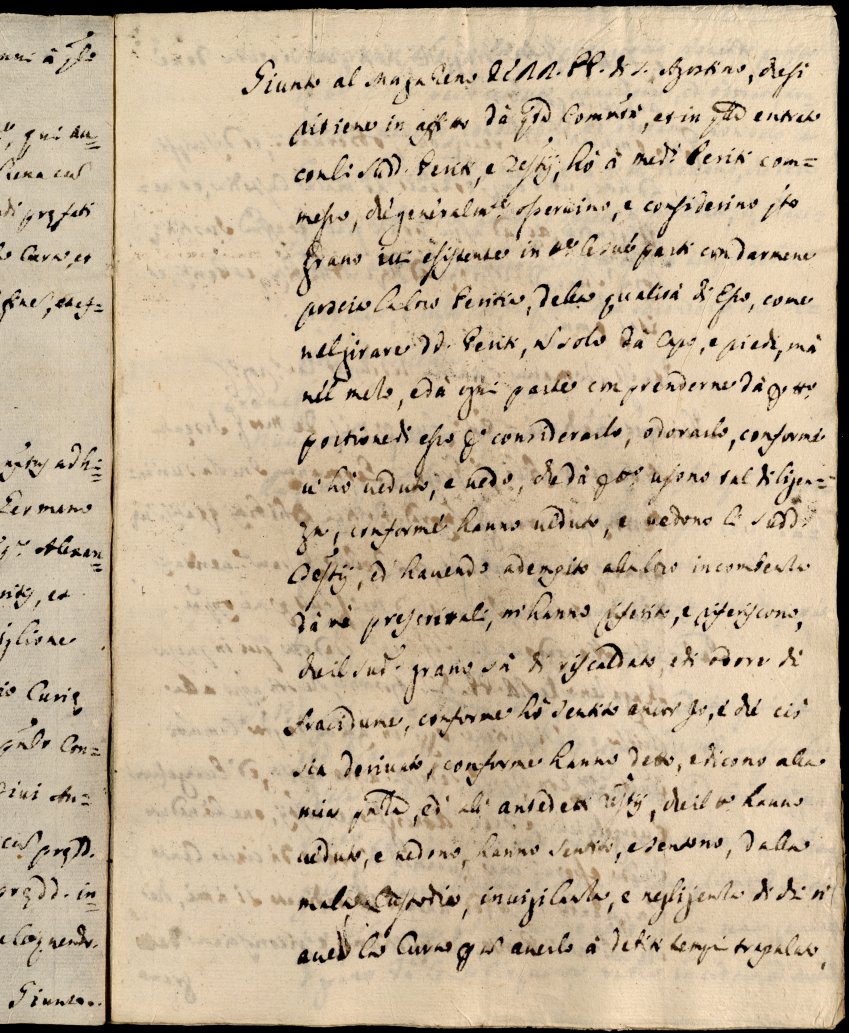 nni à
qui au=
Siena cu
di pręfati
Curn, et
fine, exef=
adhi=
Fermano
Alexan=
rity, et
iglione
io Curię
Con=
Divi Au=
pręd.
prędd. in=
e loquendo.
Giunto.
Giunto al Magazeno dè RR. PP. di S. Agostino, che si
ritiene in affitto dà qsta Commtà, et in qsto entrato
con li sudd. Periti, e Testij, hò à medi Periti com=
messo, che generalmte osservino, e considerino qsto
grano ivi esistente in tte le sue parti con darmene
poscia la loro Peritia, della qualità di Esso, come
nel girare dd. Periti, nò solo dà Capo, e piedi, mà
nel mezzo, e dà ogni parte con prenderne dà p tto
portione di esso p considerarlo, odorarlo, conforme
vi hò veduto, e vedo, che dà p tto usono tal diligen=
za, conforme hanno veduto, e vedono li sudd.
Testij, ed havendo adempito alla loro incombenza
dà me prescrittali, m'hanno riferito, e riferiscono,
che il sud. grano sà di riscaldato, e di odore di
fracidume, conforme hò sentito ancor Jo, è che ciò
sia derivato, conforme hanno detto, e dicono alla
mia pnza, ed alli antedetti Testij, che il tto hanno
veduto, e vedono, hanno sentito, e sentono, dalla
mala Custodia, invigilanza, e negligenza di chi n'
aveva la Cura p nò averlo à debiti tempi trapalato,